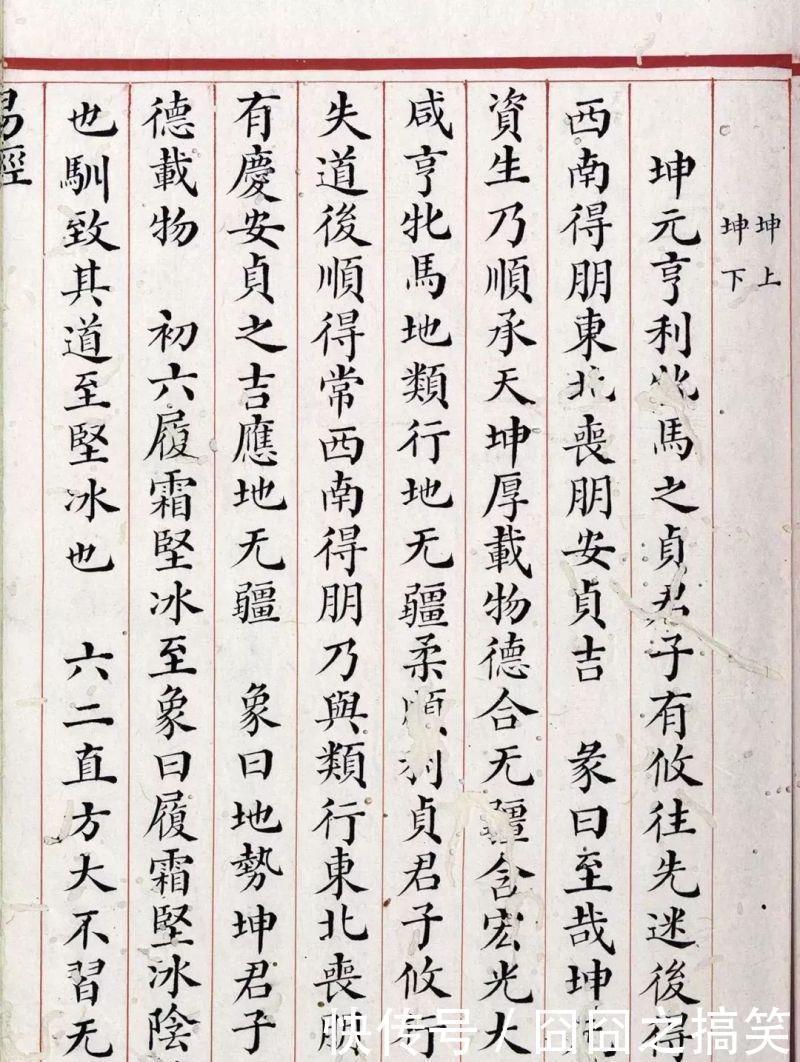 坤上
坤下
坤元亨利牝馬之貞君子有攸往先迷後得
西南得朋東北喪朋安貞吉 彖曰至哉坤
資生乃順承天坤厚載物德合无疆含宏光大
咸亨牝馬地類行地无疆柔順利貞君子攸行
失道後順得常西南得朋乃與類行東北喪朋
有慶安貞之吉應地无疆 象曰地勢坤君子
德載物 初六履霜堅冰至象曰履霜堅冰陰
也馴致其道至堅冰也 六二直方大不習无
易經
快传号 / 囧囧之搞笑